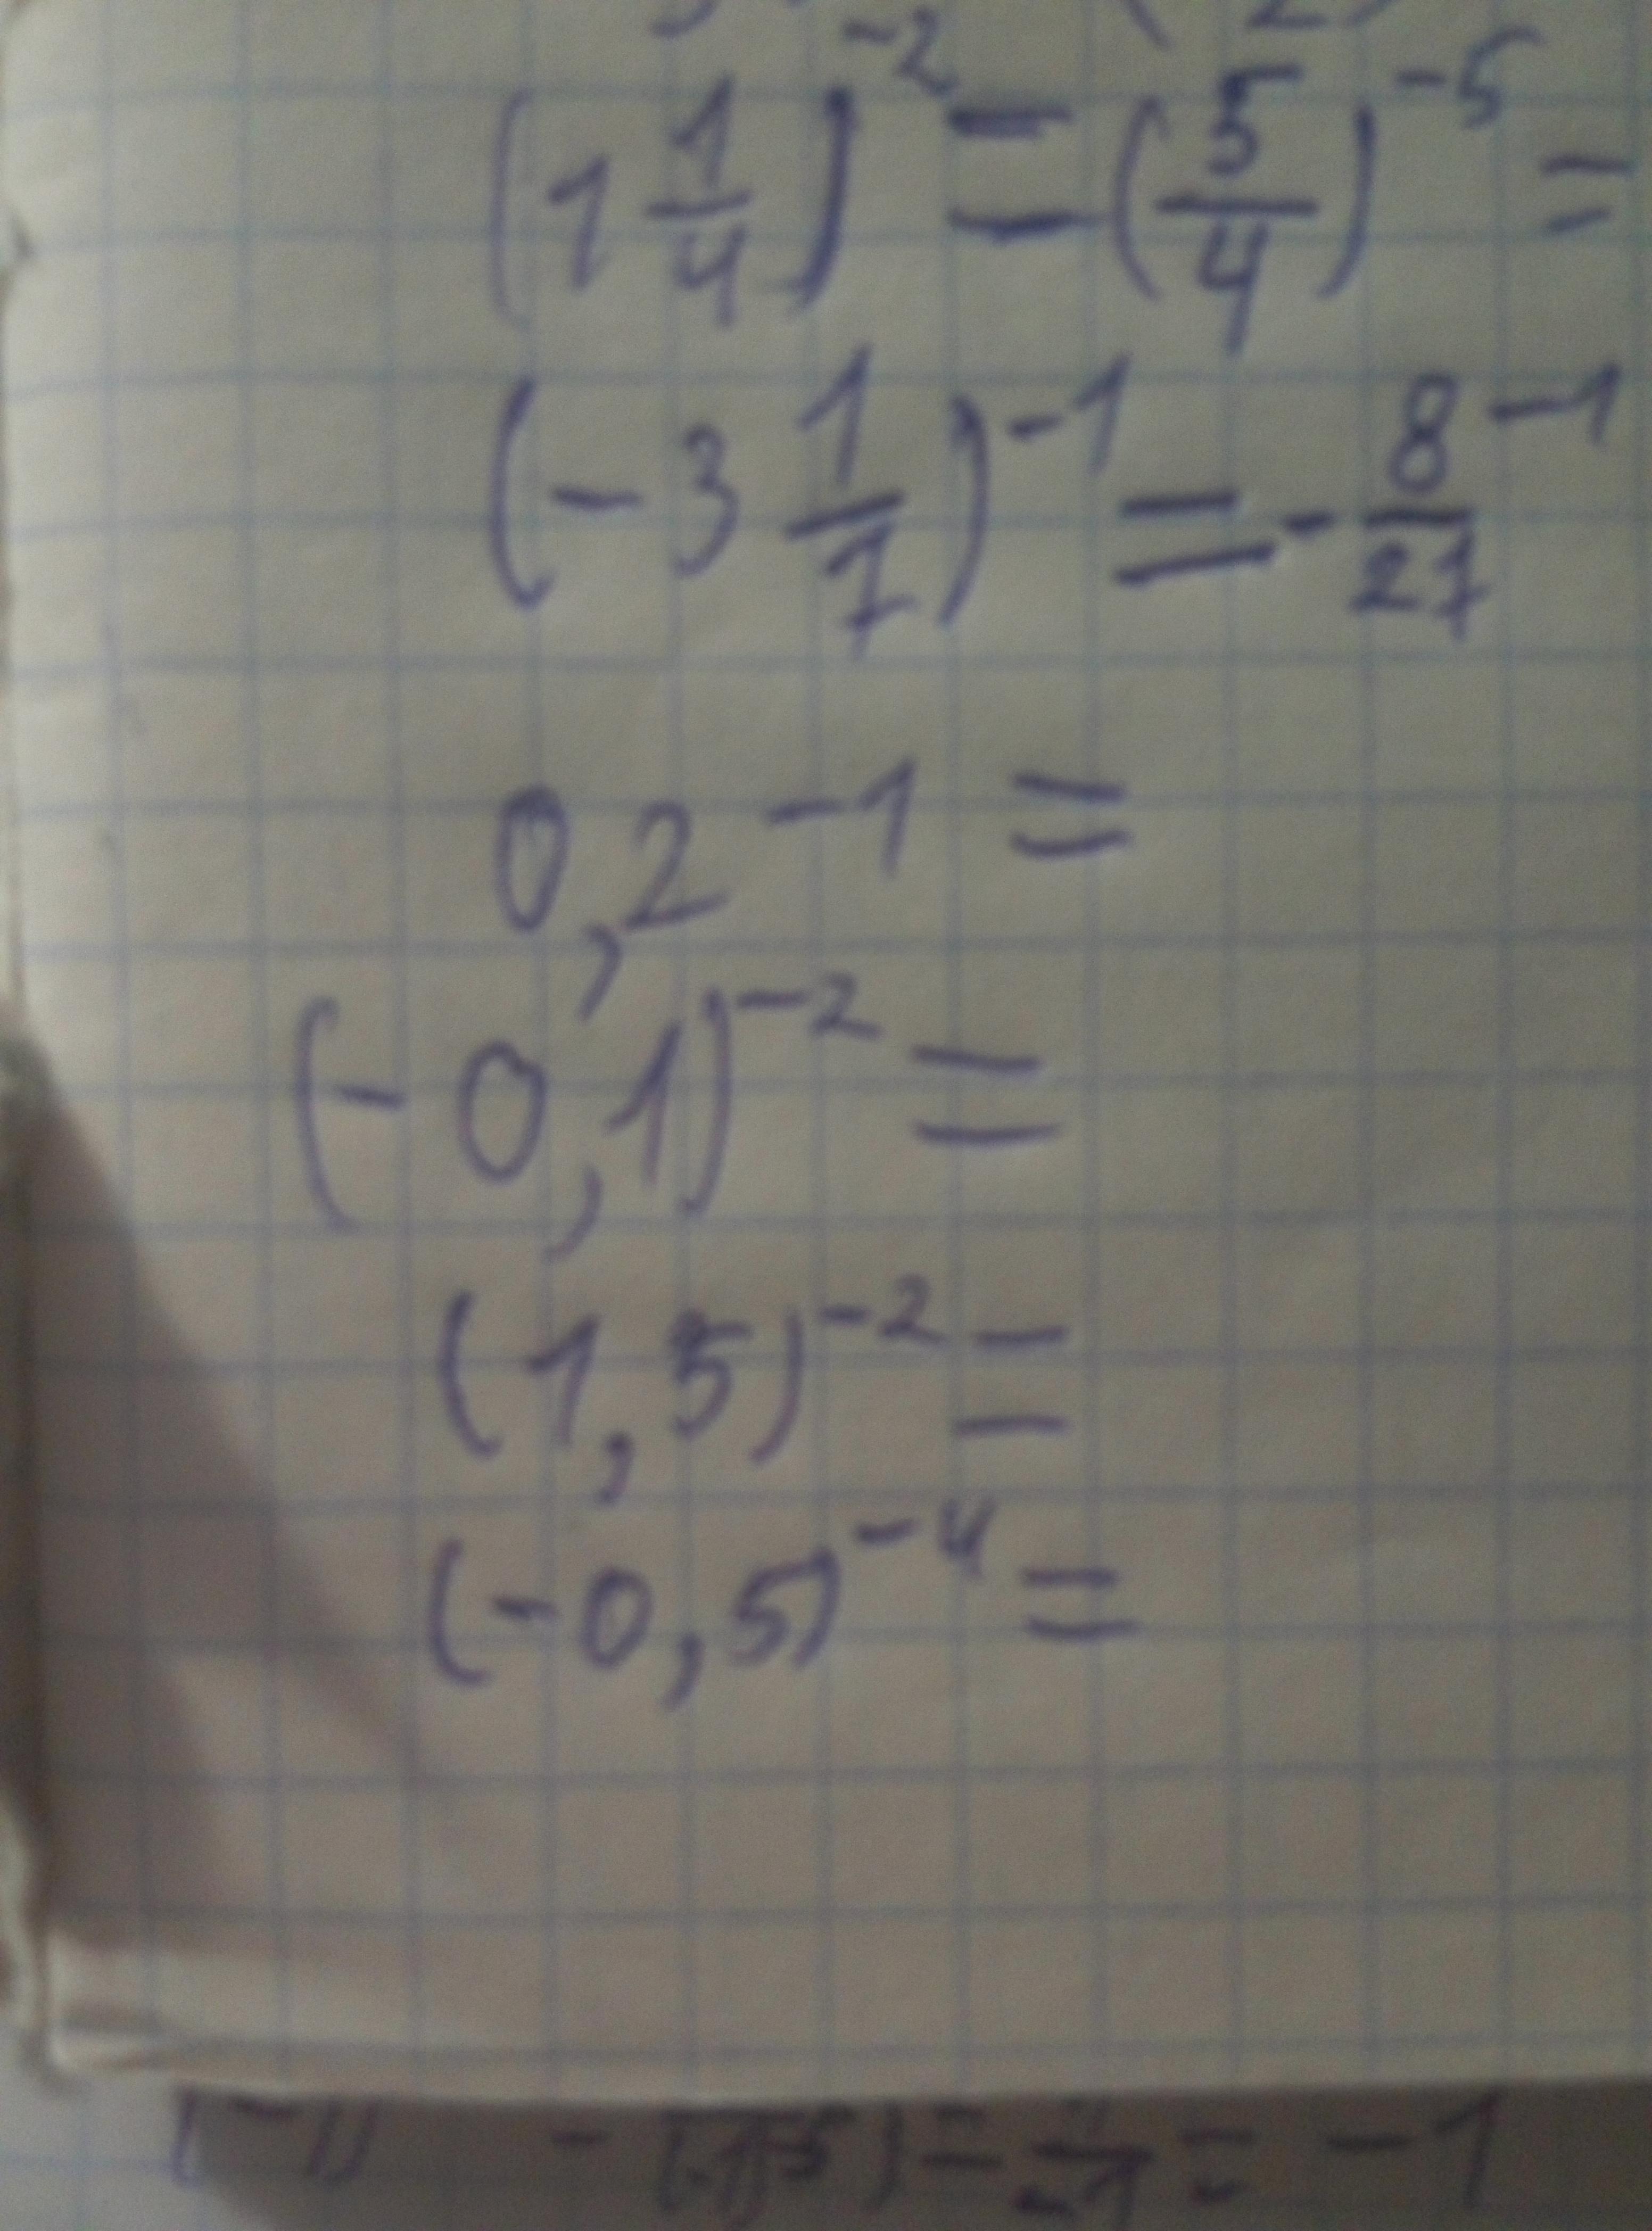 (1 1/4)^-2 = (5/4)^-5 =
(-3 1/7)^-1 = - 8/21^-1
0,2^-1 =
(-0,1)^-2 =
(1,5)^-2 =
(-0,5)^-4 =
= -1